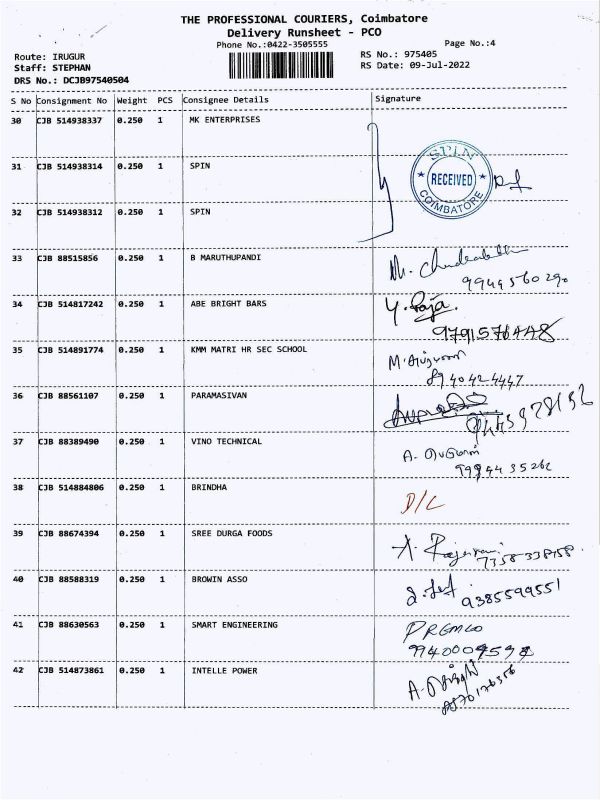 THE PROFESSIONAL COURIERS, Coimbatore
Delivery Runsheet - PCO
Phone No.:0422-3505555
Page No.:4
Route: IRUGUR
Staff: STEPHAN
DRS No.: DCJB97540504
RS No.: 975405
RS Date: 09-Jul-2022
S No Consignment No Weight PCS Consignee Details Signature
30 CJB 514938337 0.250 1 MK ENTERPRISES
31 CJB 514938314 0.250 1 SPIN
SPIN
RECEIVED
COIMBATORE
32 CJB 514938312 0.250 1 SPIN
33 CJB 88515856 0.250 1 B MARUTHUPANDI
9944560290
34 CJB 514817242 0.250 1 ABE BRIGHT BARS
Y. Raja.
35 CJB 514891774 0.250 1 KMM MATRI HR SEC SCHOOL
8940424447
36 CJB 88561107 0.250 1 PARAMASIVAN
37 CJB 88389490 0.250 1 VINO TECHNICAL
9994435262
38 CJB 514884806 0.250 1 BRINDHA
D/L
39 CJB 88674394 0.250 1 SREE DURGA FOODS
7358338158
40 CJB 88588319 0.250 1 BROWIN ASSO
9385599551
41 CJB 88630563 0.250 1 SMART ENGINEERING
42 CJB 514873861 0.250 1 INTELLE POWER